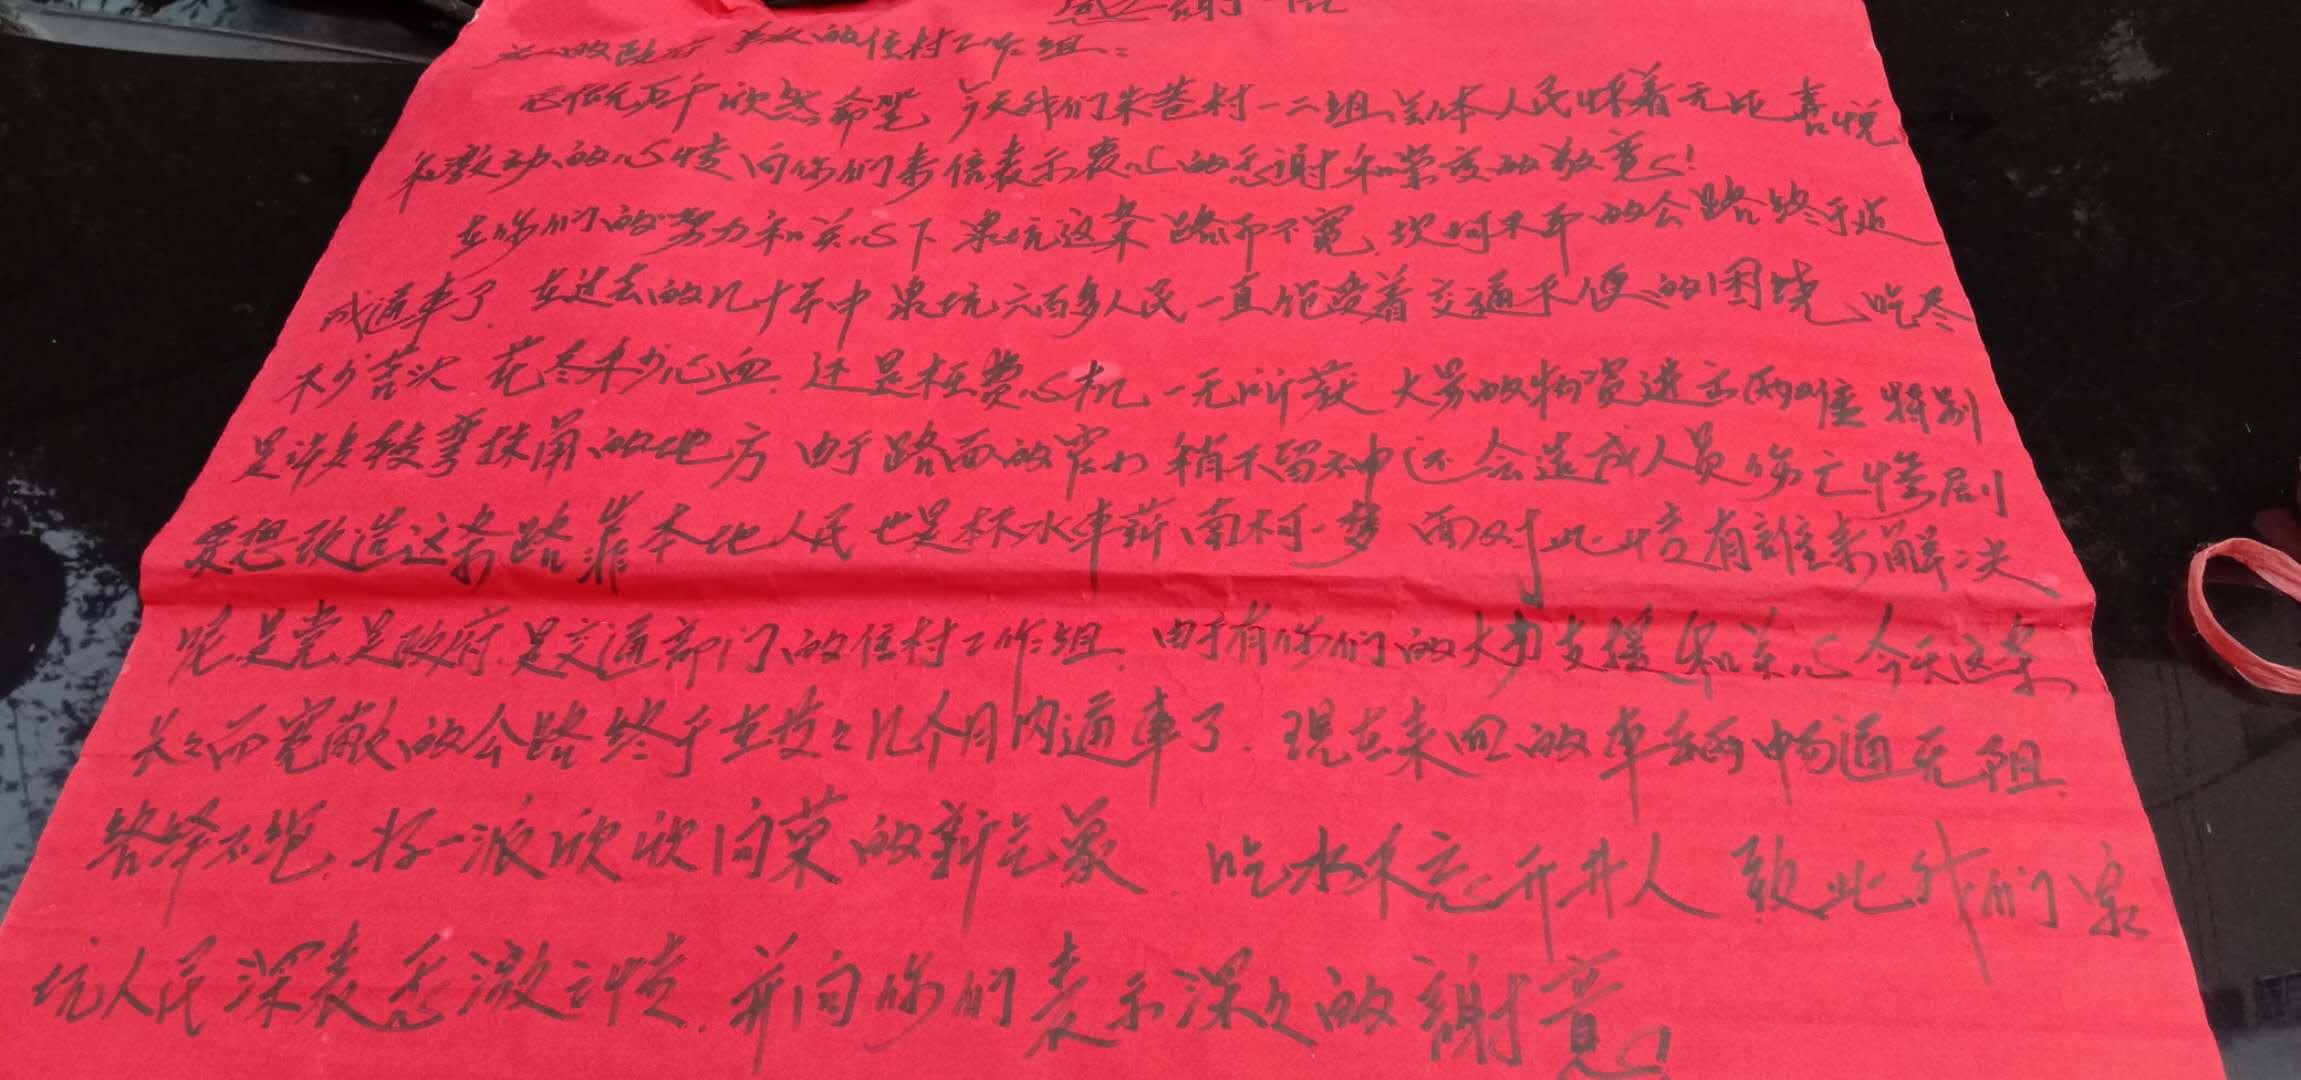 感谢信
的政府 的住村工作组：
欣然希望 今天我们朱巷村一二组全体人民怀着无比喜悦
和激动的心情向你们来信表示衷心的感谢和崇高的敬意！
在你们的努力和关心下 泉坑这条路面不宽，坎坷不平的公路终于造
成通车了，在过去的几十年中 泉坑六百多人民一直饱受着交通不便的困境，吃尽
不少苦头 花尽不少心血，还是枉费心机 一无所获 大量的物资进出两难 特别
是许多转弯抹角的地方 由于路面的窄小 稍不留神还会造成人员伤亡惨剧
要想改造这条路靠本地人民也是杯水车薪南柯一梦 面对此情有誰来解决
呢，是党，是政府，是交通部门的住村工作组，由于有你们的大力支援和关心 今天这条
长长而宽敞的公路终于在短短几个月内通车了，现在来回的车辆畅通无阻，
络绎不绝，好一派欣欣向荣的新气象，吃水不忘开井人 致此我们泉
坑人民深表感激之情，并向你们表示深久的謝意！